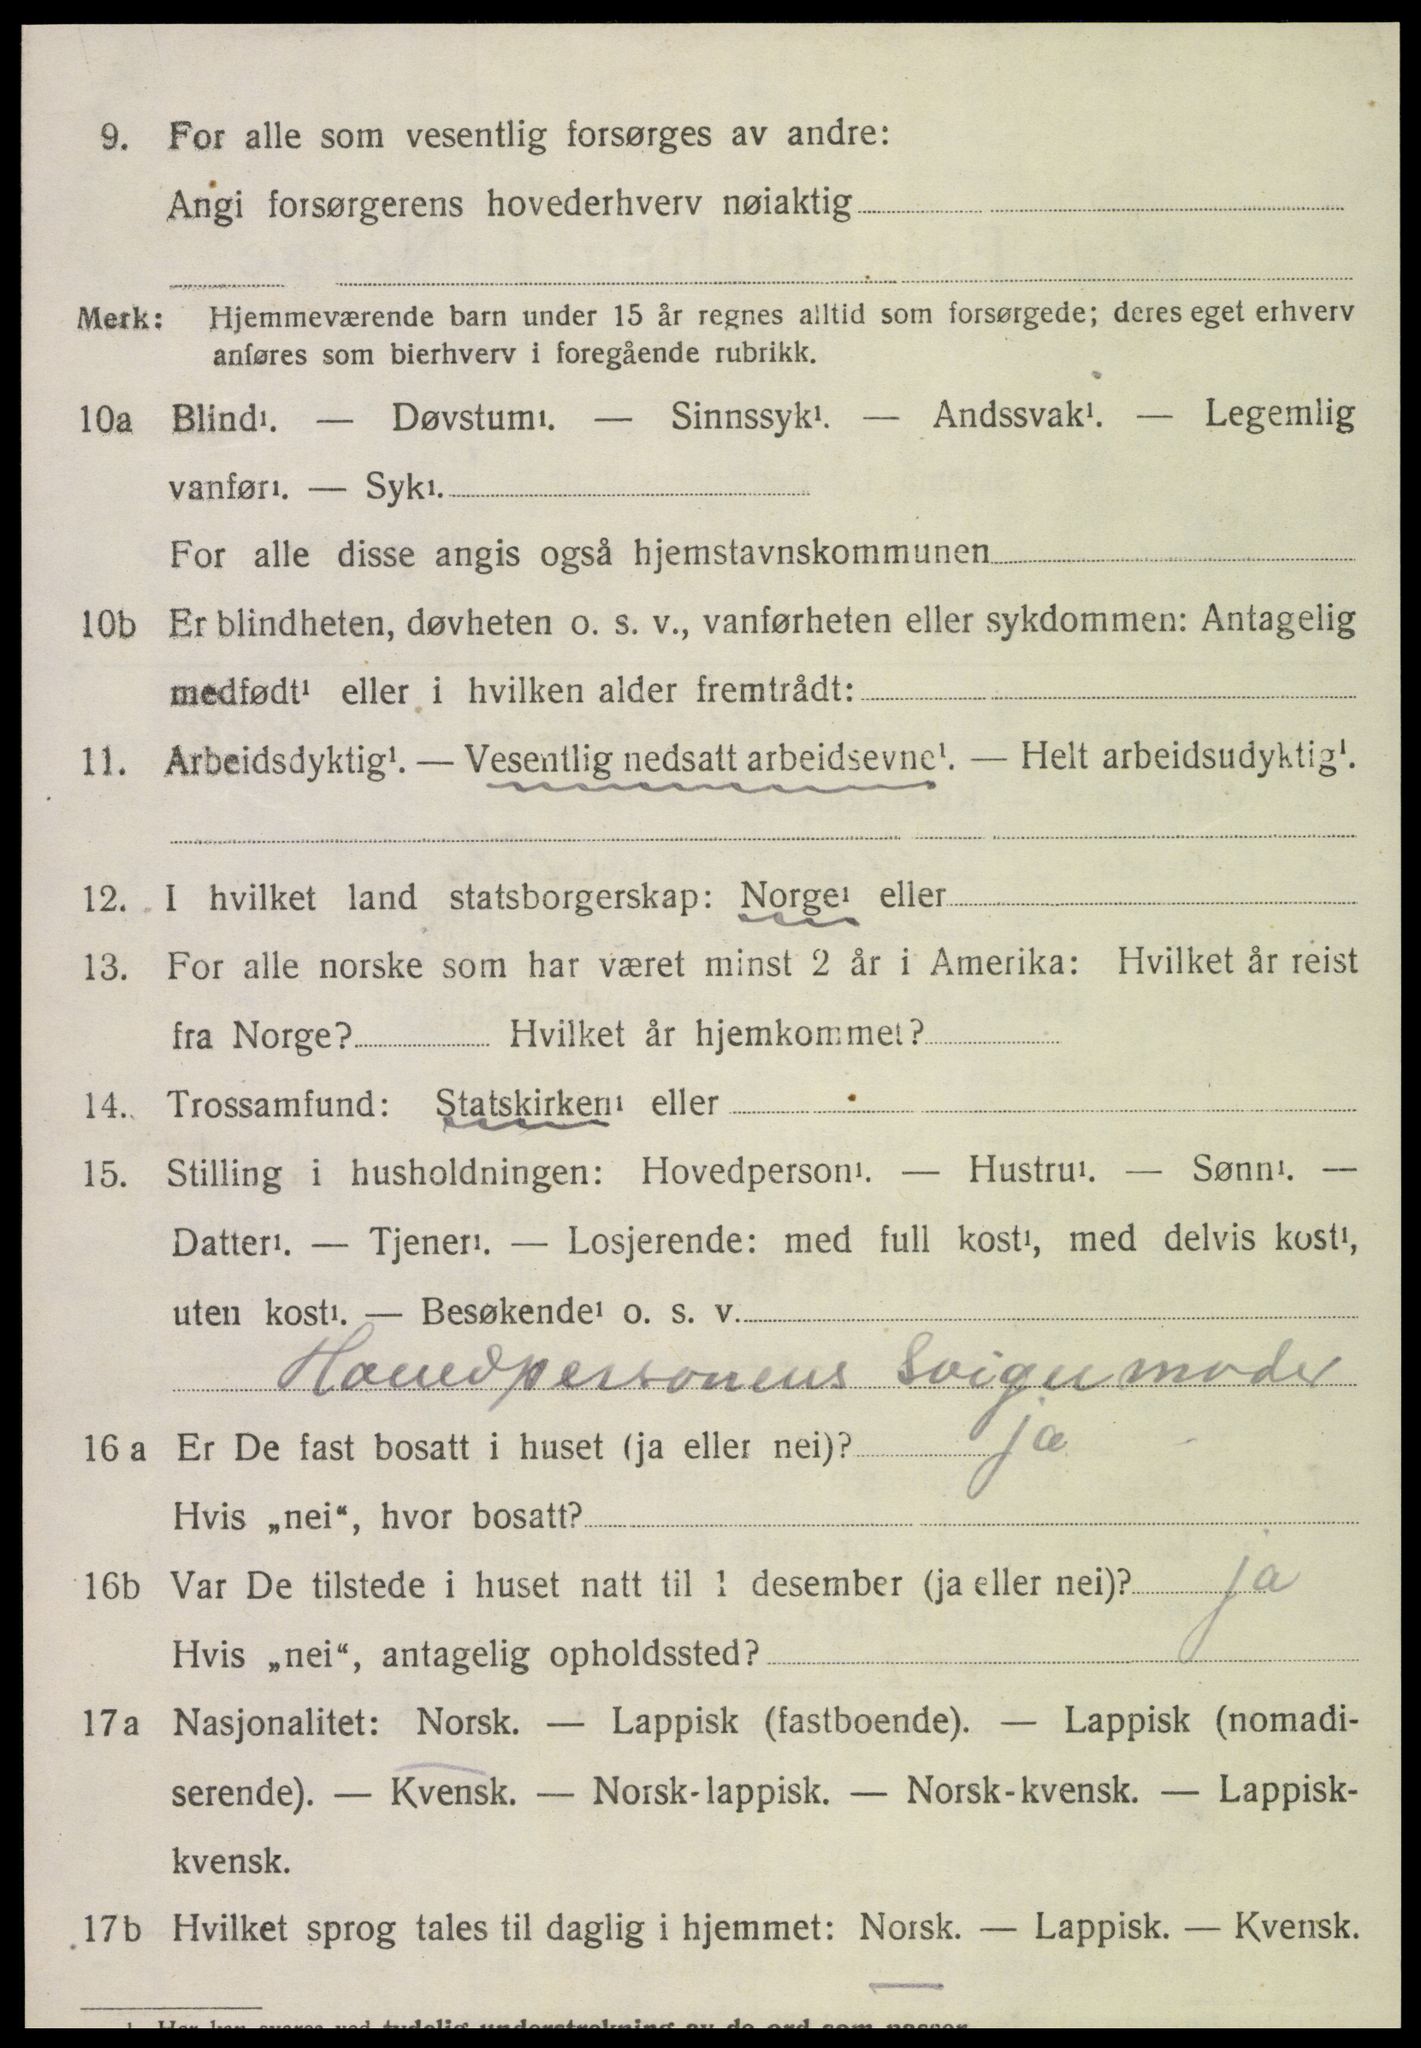 9. For alle som vesentlig forsørges av andre:
Angi forsørgerens hovederhverv nøiaktig
Merk: Hjemmeværende barn under 15 år regnes alltid som forsørgede; deres eget erhverv
anføres som bierhverv i foregående rubrikk.
10a Blind¹. — Døvstum¹. — Sinnssyk¹. — Andssvak¹. — Legemlig
vanfør¹. — Syk¹.
For alle disse angis også hjemstavnskommunen
10b Er blindheten, døvheten o. s. v., vanførheten eller sykdommen: Antagelig
medfødt¹ eller i hvilken alder fremtrådt:
11. Arbeidsdyktig¹. — Vesentlig nedsatt arbeidsevne¹. — Helt arbeidsudyktig¹.
12. I hvilket land statsborgerskap: Norge¹ eller
13. For alle norske som har været minst 2 år i Amerika: Hvilket år reist
fra Norge? Hvilket år hjemkommet?
14. Trossamfund: Statskirken¹ eller
15. Stilling i husholdningen: Hovedperson¹. — Hustru¹. — Sønn¹. —
Datter¹. — Tjener¹. — Losjerende: med full kost¹, med delvis kost¹,
uten kost¹. — Besøkende¹ o. s. v.
Hovedpersonens Svigermoder
16 a Er De fast bosatt i huset (ja eller nei)? ja
Hvis „nei“, hvor bosatt?
16b Var De tilstede i huset natt til 1 desember (ja eller nei)? ja
Hvis „nei“, antagelig opholdssted?
17a Nasjonalitet: Norsk. — Lappisk (fastboende). — Lappisk (nomadi-
serende). — Kvensk. — Norsk-lappisk. — Norsk-kvensk. — Lappisk-
kvensk.
17b Hvilket sprog tales til daglig i hjemmet: Norsk. — Lappisk. — Kvensk.
¹ Her kan svares ved tydelig understrekning av de ord som passer.